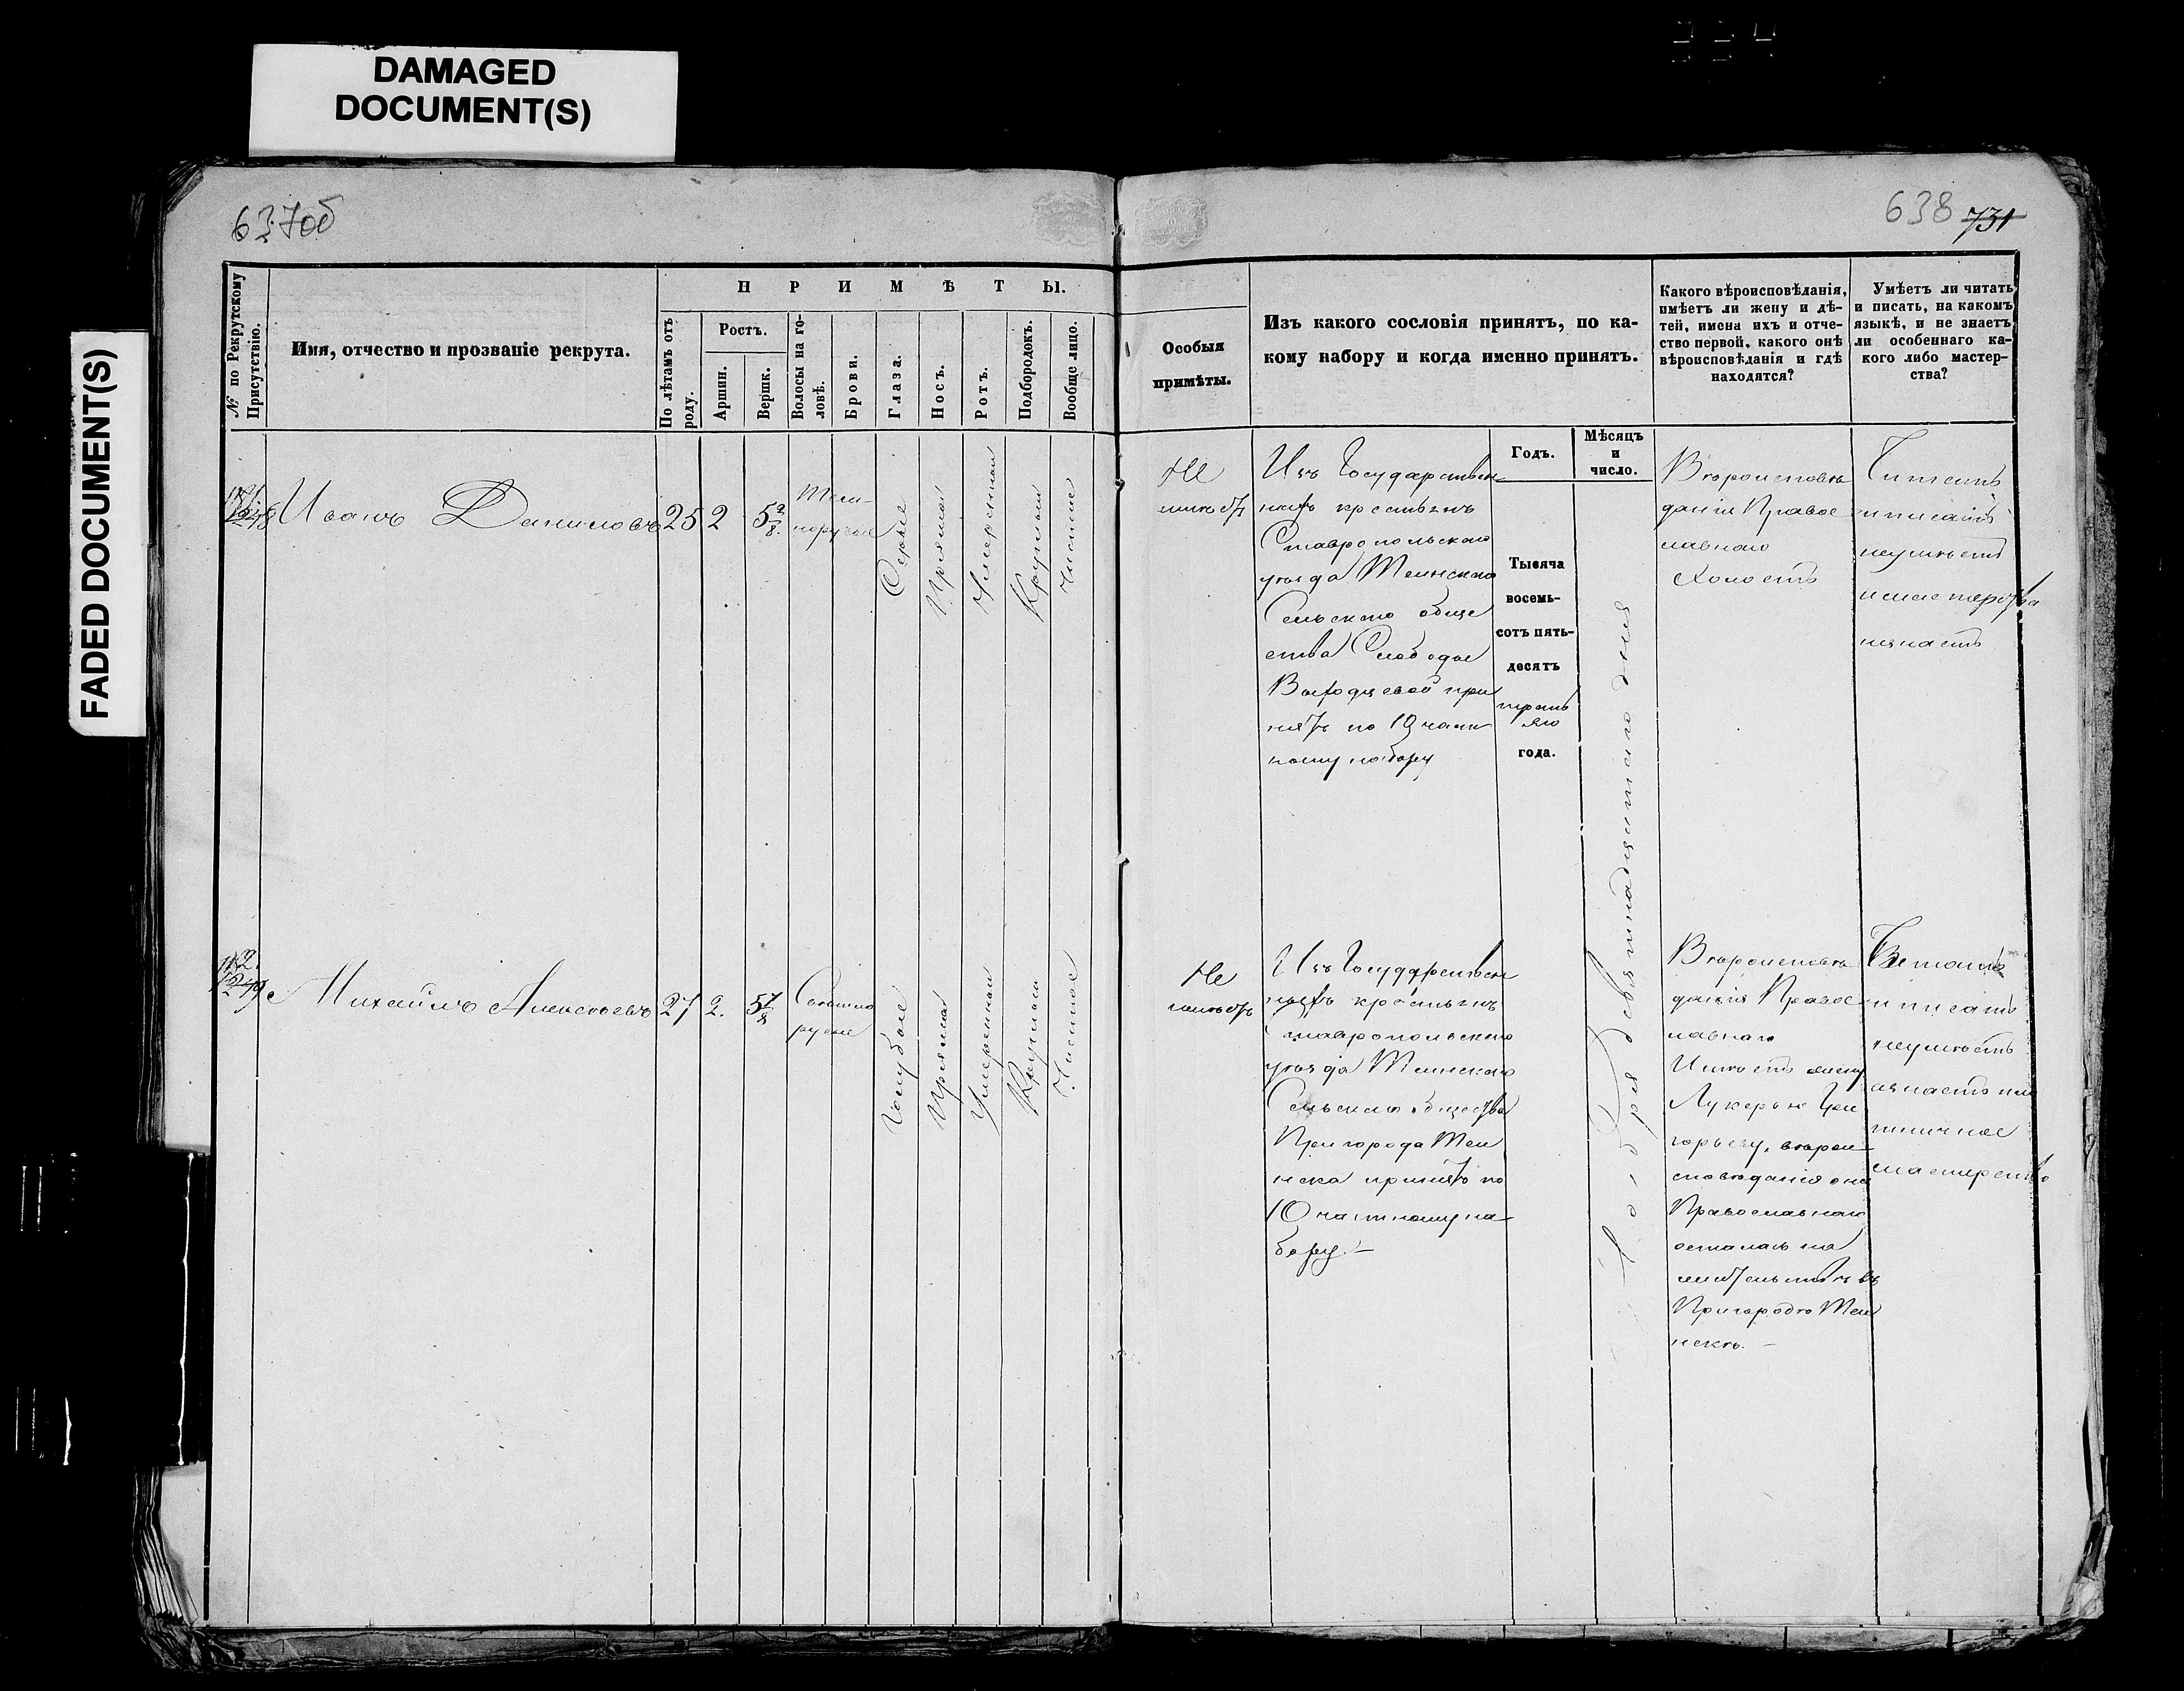 DAMAGED
DOCUMENT(S)
FADED DOCUMENT(S)
637об
638 731
№ по Рекрутскому
Присутствію.
Имя, отчество и прозваніе рекрута.
П Р И М Ѣ Т Ы.
По лѣтамъ отъ
роду.
Ростъ.
Аршин.
Вершк.
Волосы на го-
ловѣ.
Брови.
Глаза.
Носъ.
Ротъ.
Подбородокъ.
Вообще лицо.
Особыя
примѣты.
Изъ какого сословія принятъ, по ка-
кому набору и когда именно принятъ.
Какого вѣроисповѣданія,
имѣетъ ли жену и дѣ-
тей, имена ихъ и отче-
ство первой, какого онѣ
вѣроисповѣданія и гдѣ
находятся?
Умѣетъ ли читать
и писать, на какомъ
языкѣ, и не знаетъ
ли особеннаго ка-
кого либо мастер-
ства?
Годъ.
Мѣсяцъ
и
число.
1248
Иванъ Даниловъ
25
2
5 2/8
Темно
русые
Серые
Прямой
Умеренный
Круглый
Чистое
Не
имѣетъ
Изъ Государствен
ныхъ крестьянъ
Ставропольскаго
уѣзда Тѣинскаго
Сельскаго обще
ства Слободы
Выходцевой при
нятъ по 10 част
ному набору
Тысяча
восемь-
сотъ пять-
десятъ
третьяго
года.
Ноября девятнадцатаго дня
Вѣроисповѣ
данія Правос
лавнаго
Холостъ
Читать
и писать
неумѣетъ
и мастерства
незнаетъ
1249
Михайлъ Алексѣевъ
27
2.
5 7/8
Свѣтло
русые
Голубые
Прямой
Умеренный
Круглый
Чистое
Не
имѣетъ
Изъ Государствен
ныхъ крестьянъ
Ставропольскаго
уѣзда Тѣинскаго
Сельскаго общества
Пригорода Тѣи
нска принятъ по
10 частному на
бору.—
Вѣроисповѣ
данія Правос
лавнаго
Имѣетъ жену
Лукерью Гри
горьеву, вѣрои
сповѣданія она
Православнаго
осталась на
жительствѣ въ
Пригородѣ Тѣи
нскѣ.—
Читать
и писать
неумѣетъ
а знаетъ
мастерство